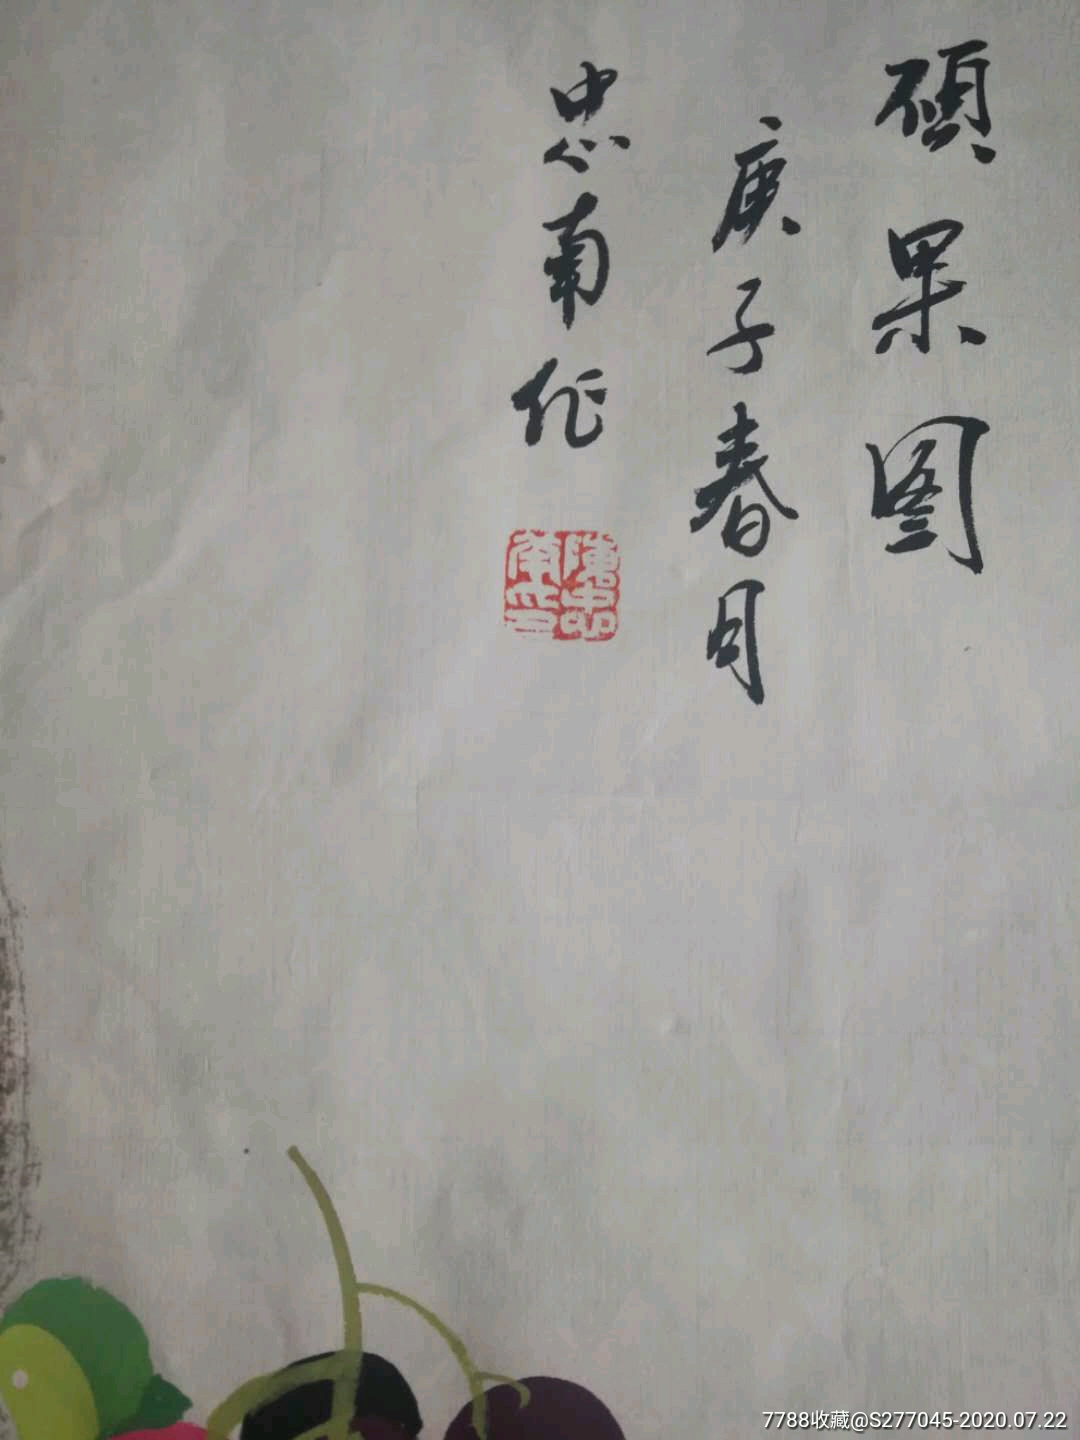 硕果图
庚子春月
忠南作
陳忠南印
7788收藏@S277045-2020.07.22